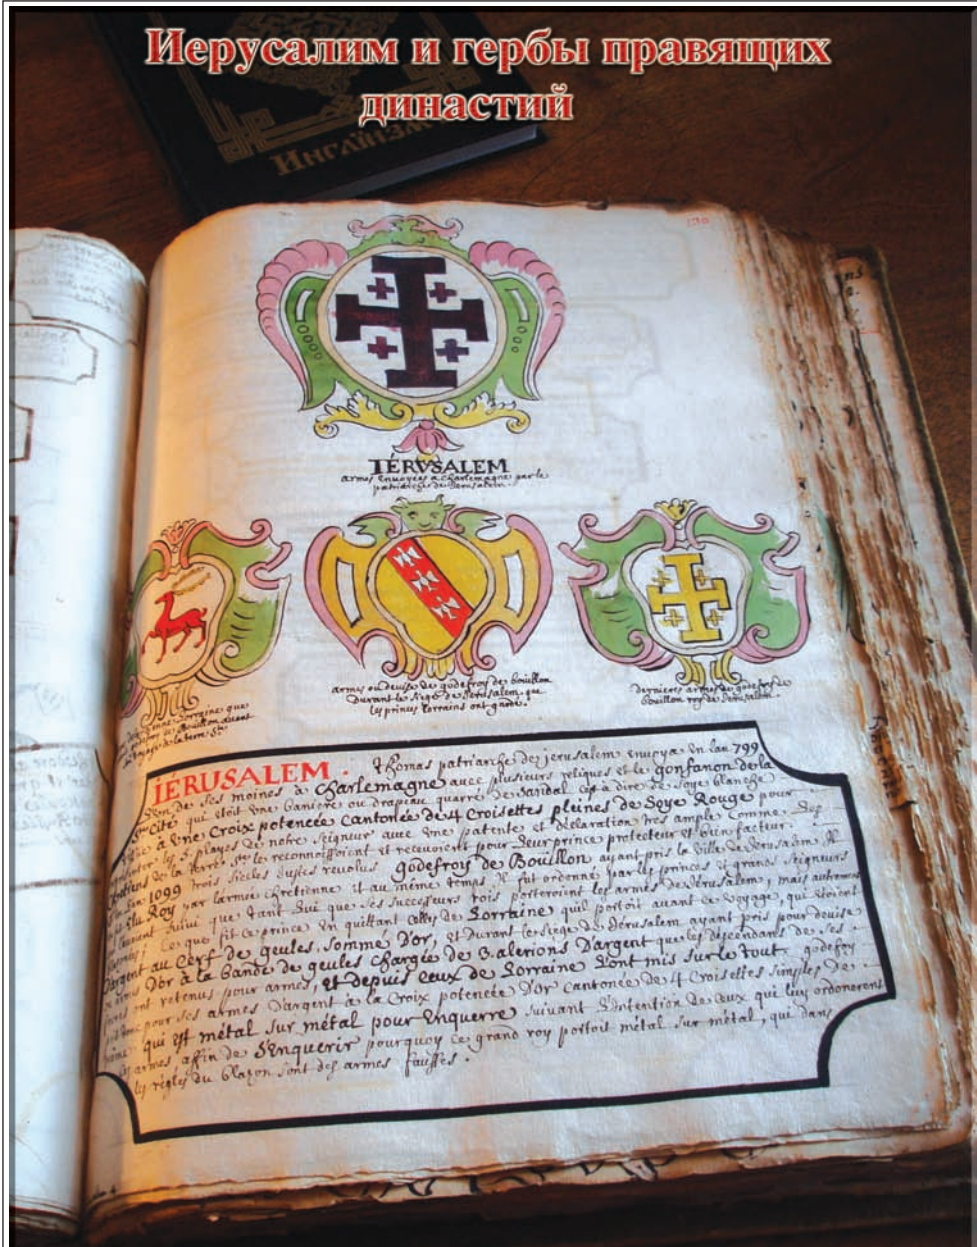 Иерусалим и гербы правящих
династий
Инглiизм
130
IÉRVSALEM
armes envoyées a charlemagne par le
patriarche de Jerusalem.
armes ou devise de godefroy de bouillon
Durant le siège de Jerusalem que
les princes lorrains ont gardé.
dernieres armes de godefroy de
bouillon roy de Jerusalem.
Lorraine que
godefroy de Bouillon avant
voyage de la terre Ste
IÉRUSALEM. Thomas patriarche de jerusalem envoya en l'an 799
de ses moines à Charlemagne avec plusieurs reliques et le gonfanon de la
Ste Cité qui étoit une baniere ou drapeau quarré de Sandal c'est à dire de soye blanche
à une Croix potencée cantonée de 4 Croisettes pleines de Soye Rouge pour
les 5 playes de notre seigneur avec une patente et déclaration tres ample comme
de la terre Ste le reconnoissoient et recevoient pour leur prince protecteur et bien facteur.
trois siecles revolus godefroy de Bouillon ayant pris la ville de Jerusalem
1099 Elu Roy par l'armée chrétienne et au même temps Il fut ordonné par les princes et grands seigneurs
que tant lui que ses successeurs rois porteroient les armes de Jérusalem, mais autrement
ce que fit ce prince en quittant celles de Lorraine qu'il portoit avant ce voyage, qui étoient
D'argent au Cerf de geules, sommé D'or, et Durant le siege de Jérusalem ayant pris pour devise
D'or à la bande de geules chargée de 3 alerions D'argent que les descendans de ses
ont retenus pour armes, et depuis ceux de Lorraine L'ont mis sur le tout. godefroy
pour ses armes D'argent à la Croix potencée D'or cantonée de 4 Croisettes simples De
qui est métal sur métal pour Enquerre suivant L'intention de ceux qui luy ordonerent
ces armes affin de S'enquerir pourquoy ce grand roy portoit métal sur métal, qui dans
les règles du blazon sont des armes fausses.